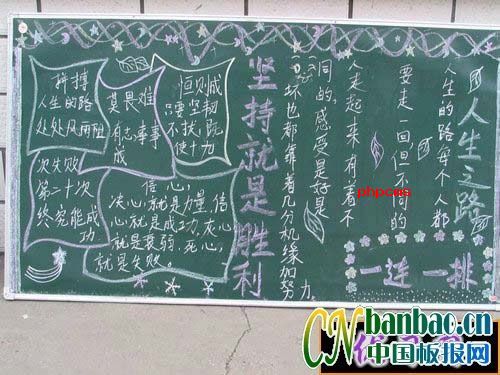 人生之路
人生的路每个人都
要走一回,但不同的
人走起来有着不
同的感受是好是
坏也都靠着几分机缘加努力
坚持就是胜利
拼搏
人生的路
处处风雨阻
莫畏难
有志事事
成
恒则成
只要坚韧
不拔
使十力
次失败
第二十次
终究能成
功
信心,
决心就是力量,信
心就是成功,灰心
就是衰弱,死心,
就是失败。
一连一排
phpcms
CNbanbao.cn
中国板报网